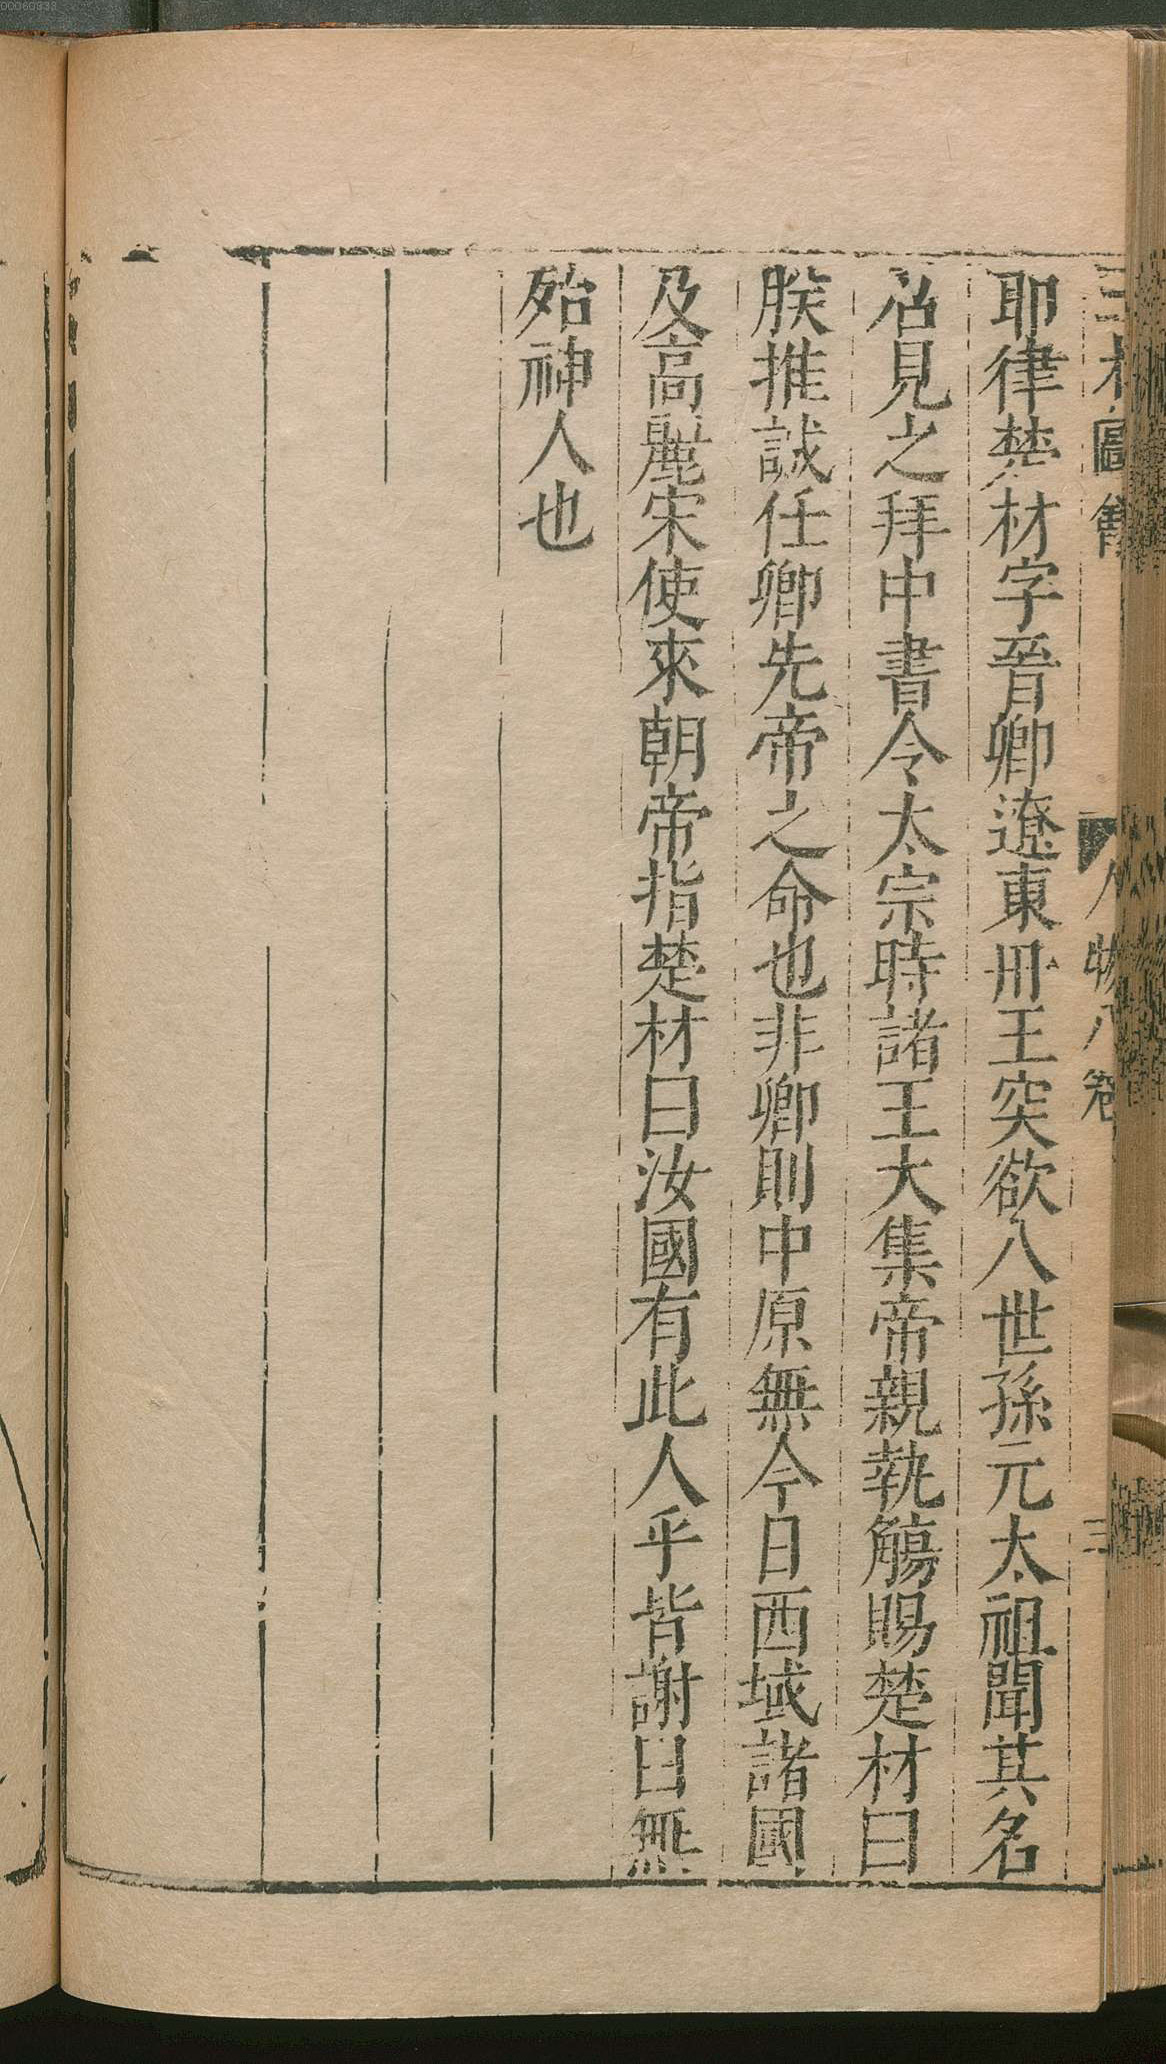 三才圖會 人物八卷 三
耶律楚材字晉卿遼東丹王突欲八世孫元太祖聞其名
召見之拜中書令太宗時諸王大集帝親執觴賜楚材曰
朕推誠任卿先帝之命也非卿則中原無今日西域諸國
及高麗宋使來朝帝指楚材曰汝國有此人乎皆謝曰無
殆神人也
00060838